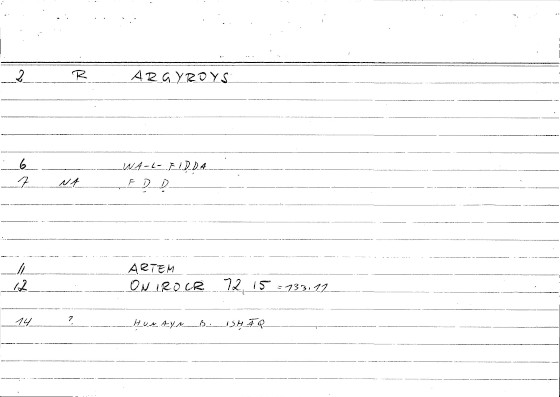 2 R ARGYROYS
6 WA-L-FIḌḌA
7 NA F Ḍ Ḍ
11 ARTEM
12 ONIROCR 72, 15 = 133.11
14 ? ḤUNAYN B. ISḤĀQ